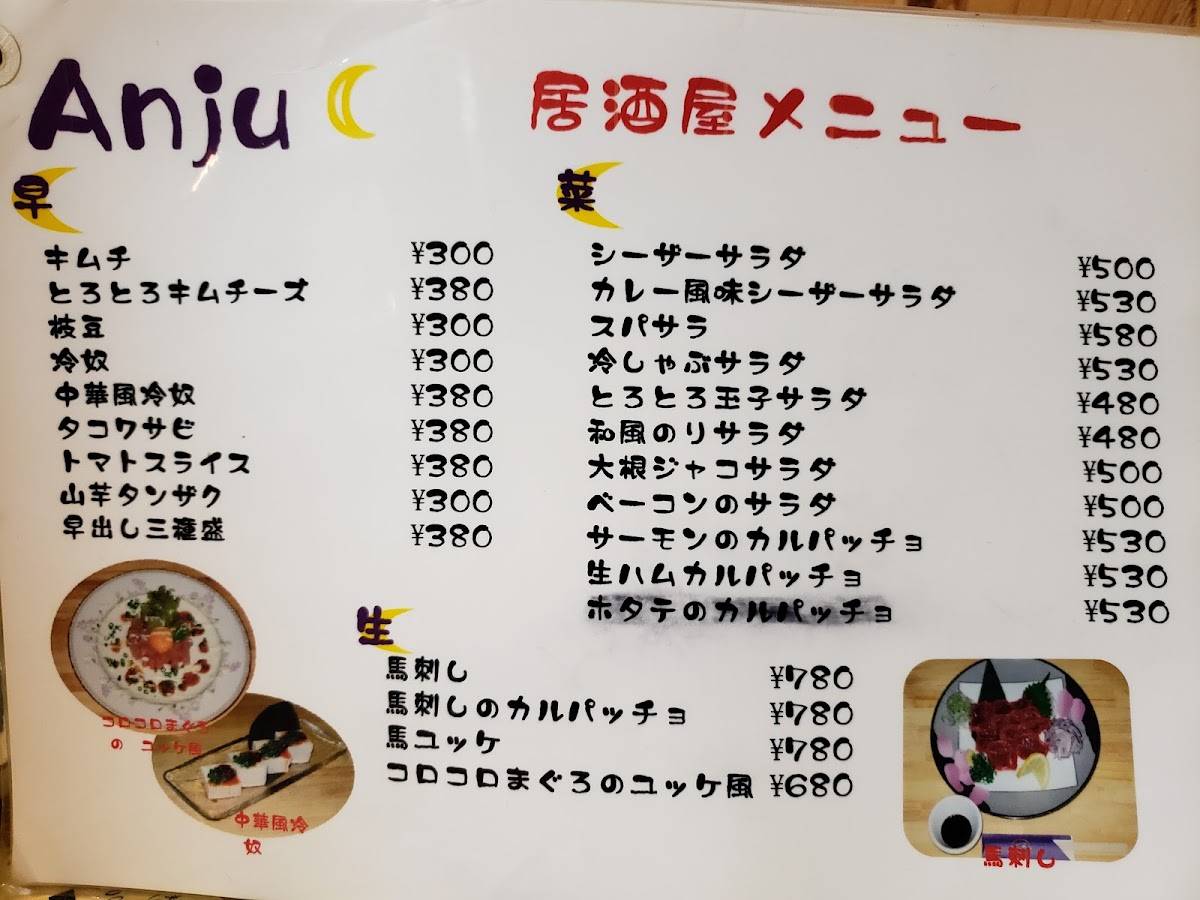 Anju
居酒屋メニュー
早
キムチ ¥300
とろとろキムチーズ ¥380
枝豆 ¥300
冷奴 ¥300
中華風冷奴 ¥380
タコワサビ ¥380
トマトスライス ¥380
山芋タンザク ¥300
早出し三種盛 ¥380
菜
シーザーサラダ ¥500
カレー風味シーザーサラダ ¥530
スパサラ ¥580
冷しゃぶサラダ ¥530
とろとろ玉子サラダ ¥480
和風のりサラダ ¥480
大根ジャコサラダ ¥500
ベーコンのサラダ ¥500
サーモンのカルパッチョ ¥530
生ハムカルパッチョ ¥530
ホタテのカルパッチョ ¥530
生
馬刺し ¥780
馬刺しのカルパッチョ ¥780
馬ユッケ ¥780
コロコロまぐろのユッケ風 ¥680
コロコロまぐろ
の ユッケ風
中華風冷
奴
馬刺し